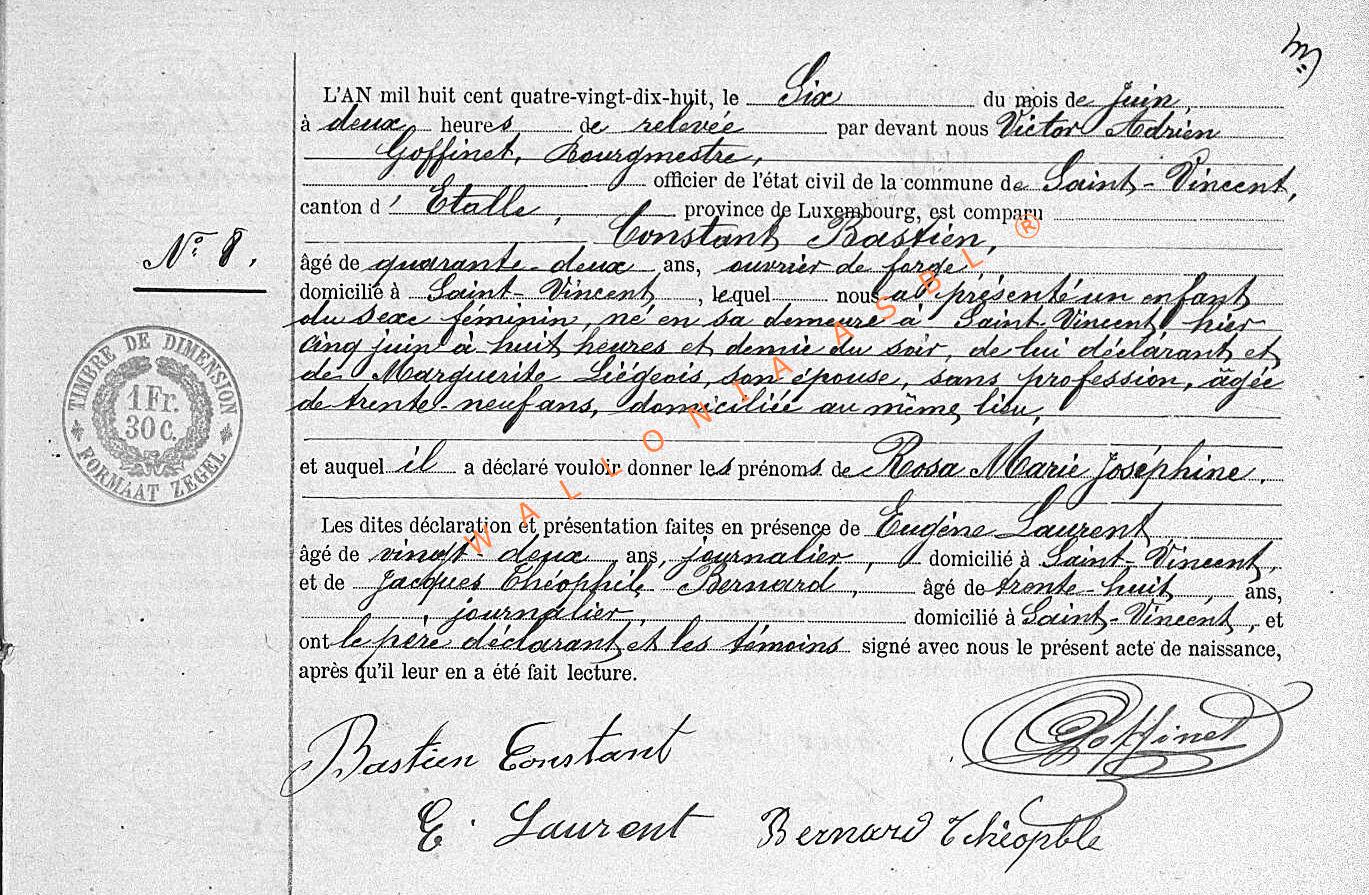 L'AN mil huit cent quatre-vingt-dix-huit, le Six du mois de Juin,
à deux heures de relevée par devant nous Victor Adrien
Goffinet, Bourgmestre,
officier de l'état civil de la commune de Saint-Vincent,
canton d'Etalle, province de Luxembourg, est comparu
Constant Bastien,
âgé de quarante-deux ans, ouvrier de forge,
domicilié à Saint-Vincent, lequel nous a présenté un enfant
du sexe féminin, né en sa demeure à Saint-Vincent, hier
cinq juin à huit heures et demie du soir, de lui déclarant et
de Marguerite Liégeois, son épouse, sans profession, âgée
de trente-neuf ans, domiciliée au même lieu,
et auquel il a déclaré vouloir donner les prénoms de Rosa Marie Joséphine.
Les dites déclaration et présentation faites en présence de Eugène Laurent,
âgé de vingt-deux ans, journalier, domicilié à Saint-Vincent,
et de Jacques Théophile Bernard, âgé de trente-huit ans,
journalier, domicilié à Saint-Vincent, et
ont le père déclarant et les témoins signé avec nous le présent acte de naissance,
après qu'il leur en a été fait lecture.
N° 8.
TIMBRE DE DIMENSION
1 Fr.
30 C.
FORMAAT ZEGEL
WALLONIA ASBL ®
Bastien Constant
Goffinet
E. Laurent Bernard Théophle